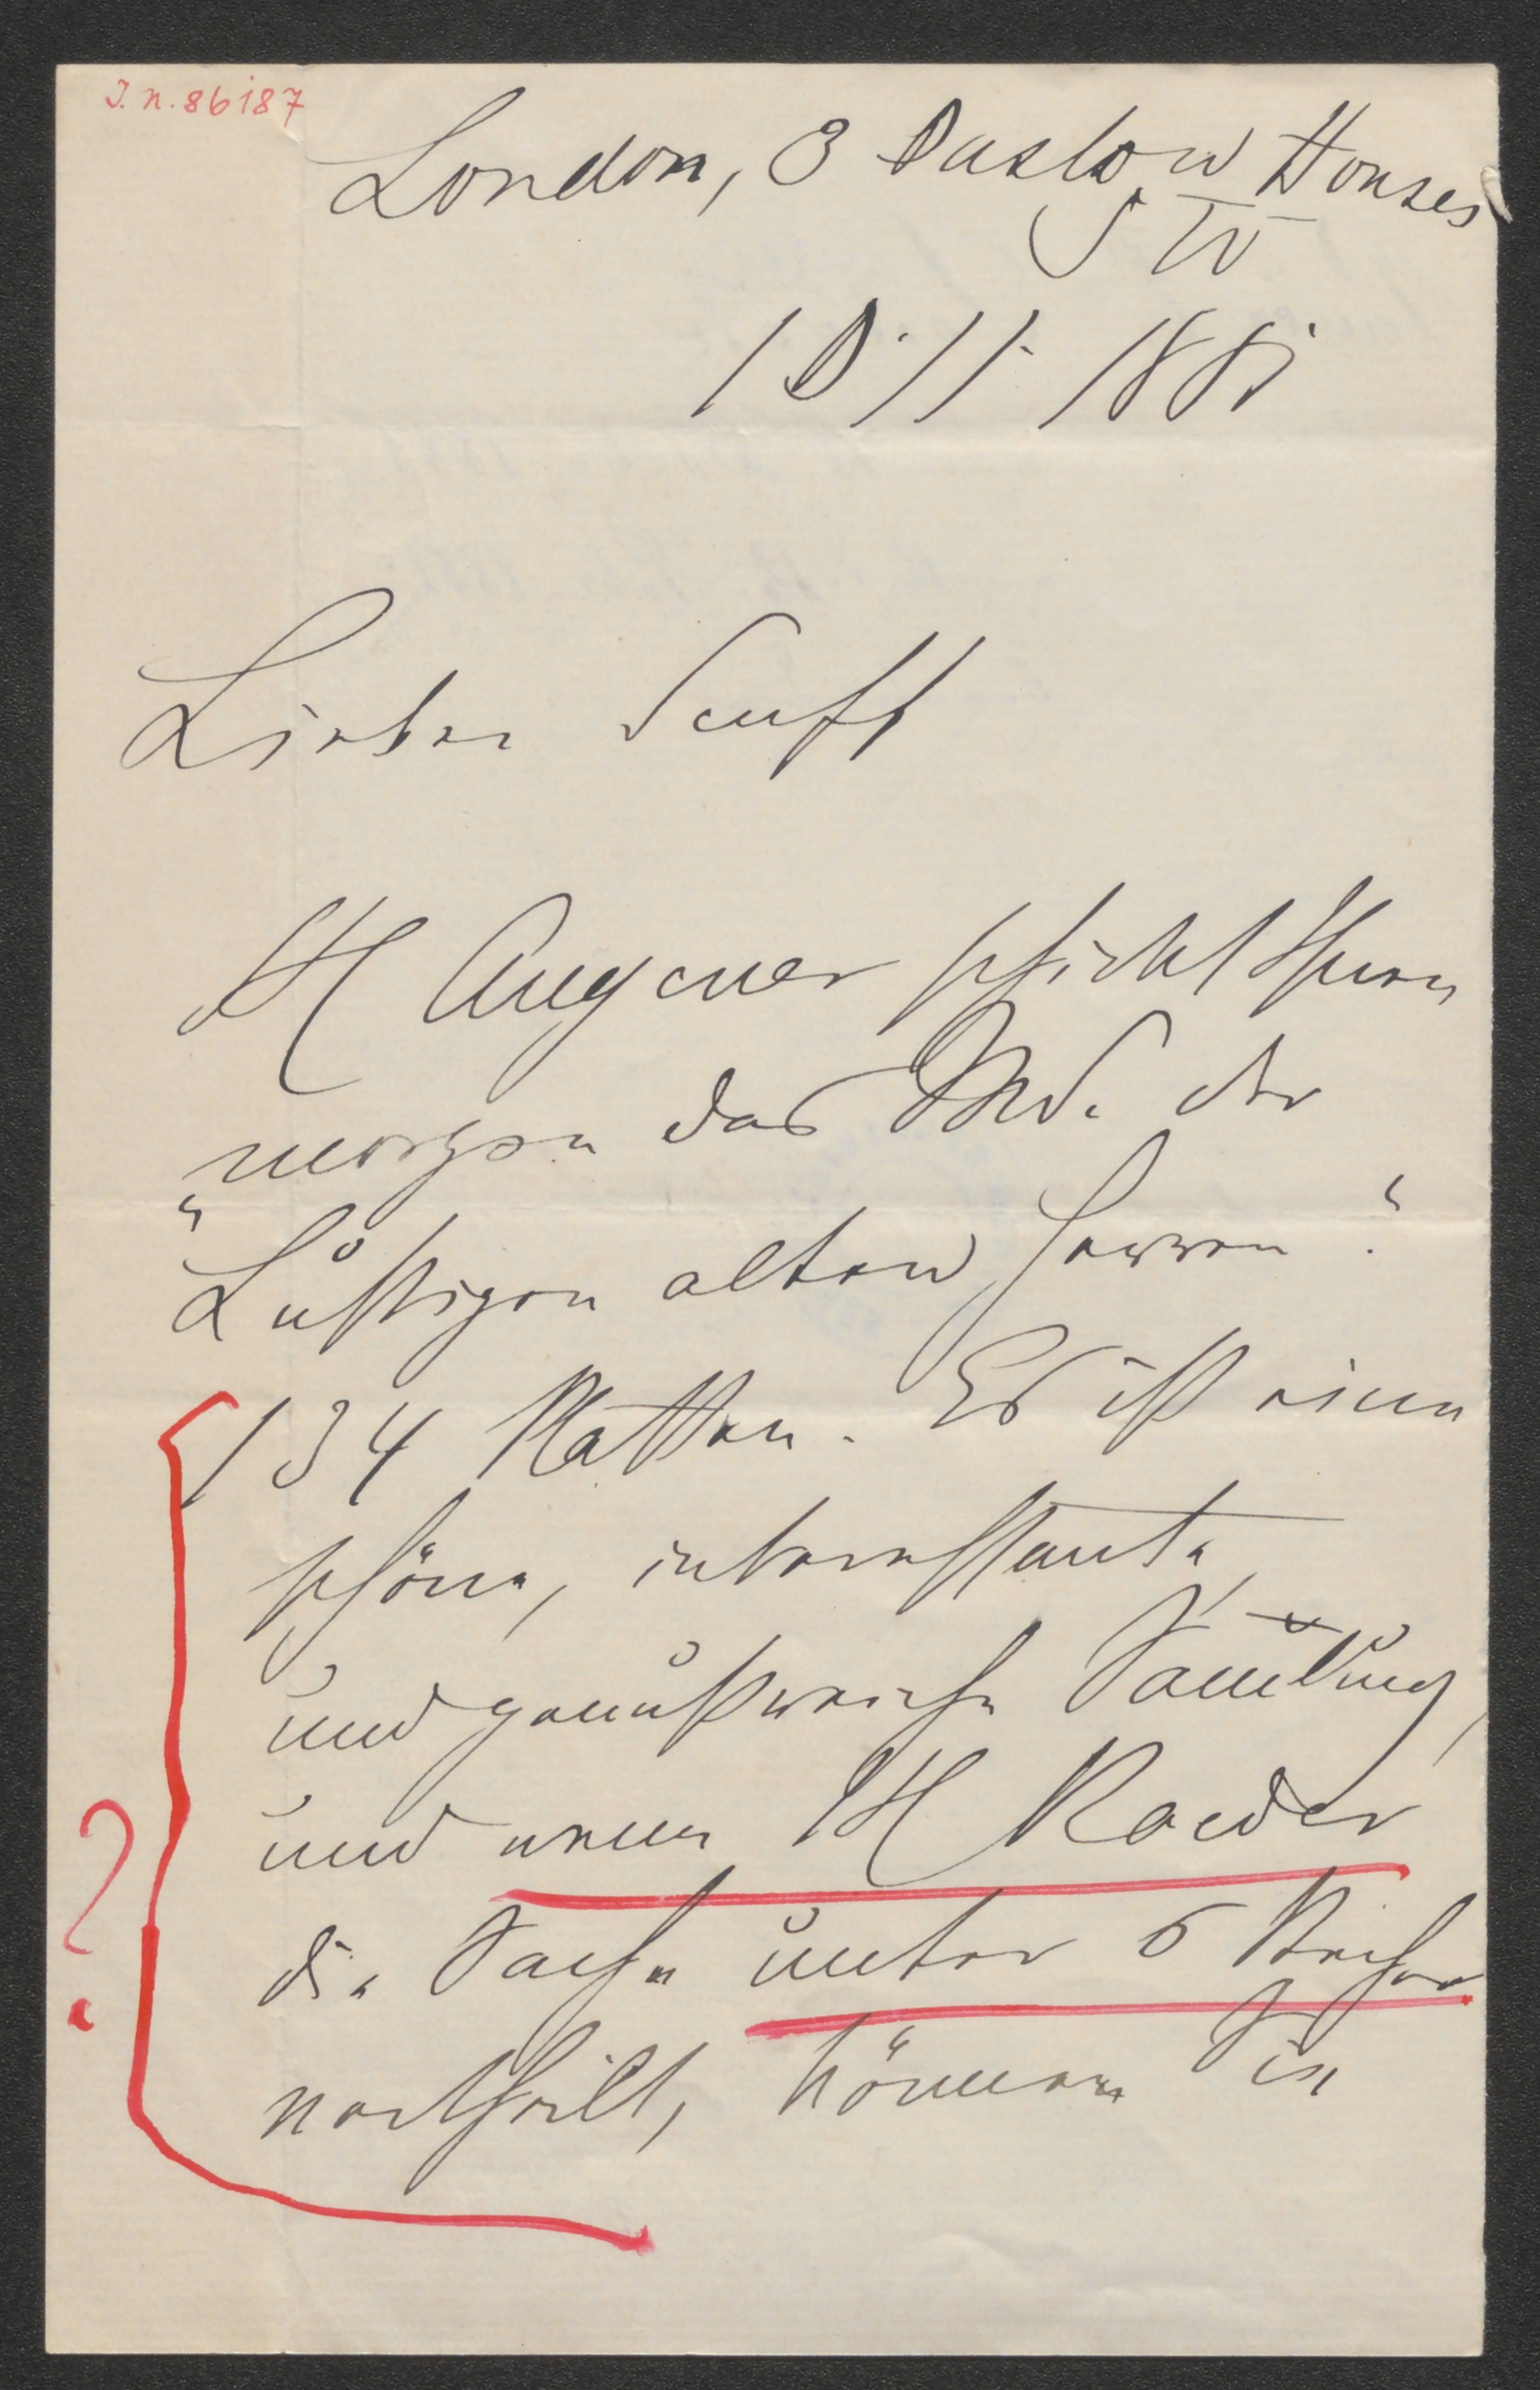 J. N. 86187
London, 3 Onslow Houses
SW
10. 11. 1885
Lieber Senff
H Augener schickt Ihnen
morgen das Ms. der
"Lustigen alten Herren".
134 Platten. Es ist eine
schöne, interessante,
und genußreiche Sam̄lung,
und wenn H Roeder
die Sache unter 6 Stecher
vertheilt, können Sie
?